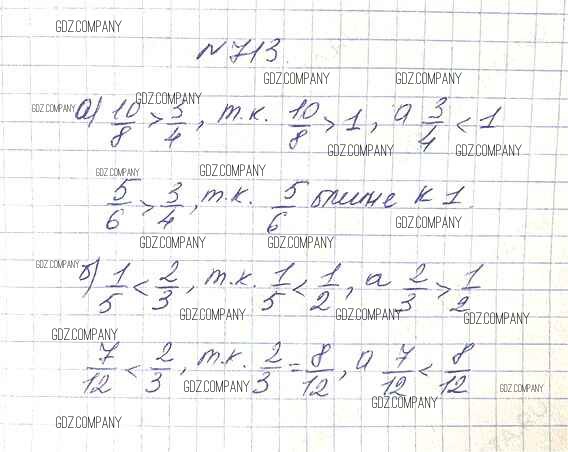 GDZ.COMPANY
N 713
GDZ.COMPANY GDZ.COMPANY
GDZ.COMPANY GDZ.COMPANY
а) 10/8 > 3/4, т.к. 10/8 > 1, а 3/4 < 1
GDZ.COMPANY GDZ.COMPANY
GDZ.COMPANY GDZ.COMPANY
5/6 > 3/4, т.к. 5/6 ближе к 1.
GDZ.COMPANY
GDZ.COMPANY GDZ.COMPANY
GDZ.COMPANY
б) 1/5 < 2/3, т.к. 1/5 < 1/2, а 2/3 > 1/2
GDZ.COMPANY GDZ.COMPANY GDZ.COMPANY
GDZ.COMPANY
7/12 < 2/3, т.к. 2/3 = 8/12, а 7/12 < 8/12
GDZ.COMPANY GDZ.COMPANY
GDZ.COMPANY
GDZ.COMPANY